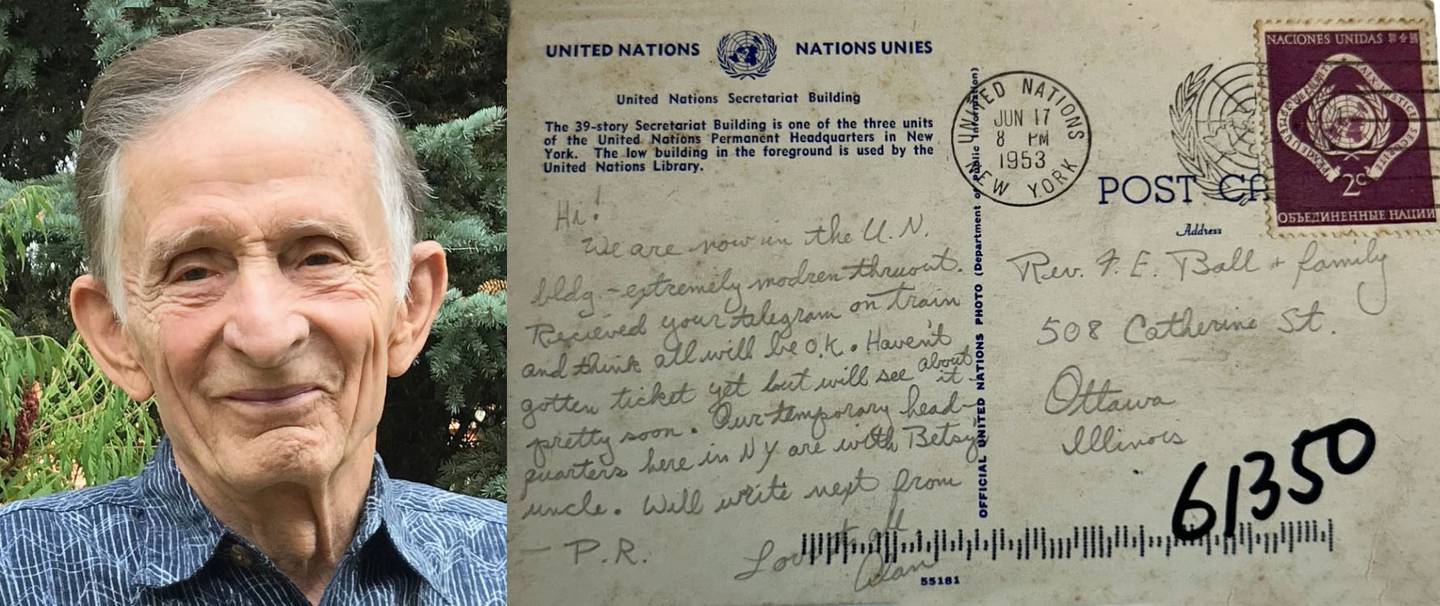 UNITED NATIONS NATIONS UNIES
United Nations Secretariat Building
The 39-story Secretariat Building is one of the three units
of the United Nations Permanent Headquarters in New
York. The low building in the foreground is used by the
United Nations Library.
Hi!
We are now in the U.N.
bldg - extremely modren thruout.
Recieved your telegram on train
and think all will be O.K. Haven't
gotten ticket yet but will see about it
pretty soon. Our temporary head-
quarters here in NY are with Betsy's
uncle. Will write next from
- P.R.
Love to all
Alan
OFFICIAL UNITED NATIONS PHOTO (Department of Public Information)
55181
UNITED NATIONS
JUN 17
8 PM
1953
NEW YORK
POST CA
Address
NACIONES UNIDAS
2c
ОБЪЕДИНЕННЫЕ НАЦИИ
Rev. F. E. Ball + family
508 Catherine St.
Ottawa
Illinois
61350